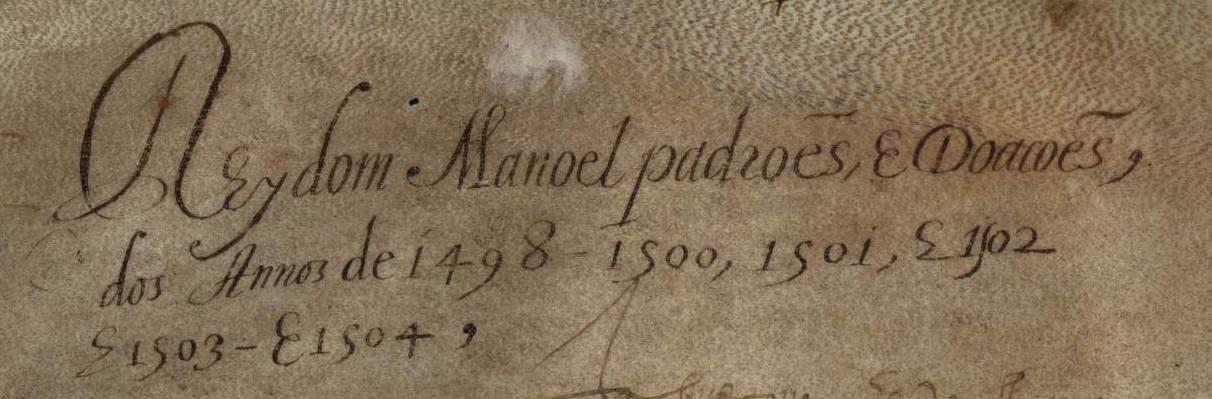 Rey dom Manoel padrões, E Doacoẽs,
dos Annos de 1498 - 1500, 1501, E 1502
E 1503 - E 1504,